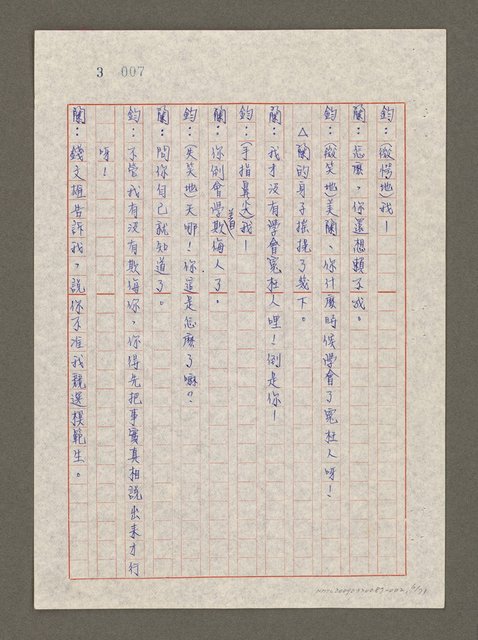 3 007
鈞：（微愕地）我—
蘭：怎麼，你還想賴不成。
鈞：（微笑地）美蘭、你什麼時候學會了冤枉人呀！
△蘭的身子搖提了幾下。
蘭：我才沒有學會冤枉人哩！倒是你—
鈞：（手指鼻尖）我—
蘭：你倒會學着欺侮人了。
鈞：（失笑地）天哪！你這是怎麼了嘛？
蘭：問你自己就知道了。
鈞：不管我有沒有欺侮你，你得先把事實真相說出來才行
呀！
蘭：錢文裡告訴我，說你不准我競選模範生。